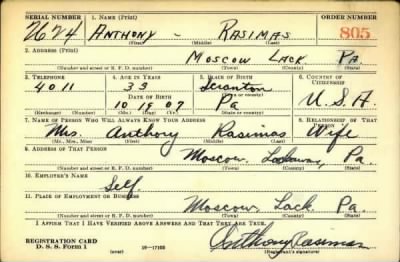 SERIAL NUMBER 1. NAME (Print) ORDER NUMBER
2624 ANTHONY - RASIMAS 805
(First) (Middle) (Last)
2. ADDRESS (Print)
MOSCOW LACK. PA.
(Number and street or R. F. D. number) (Town) (County) (State)
3. TELEPHONE 4. AGE IN YEARS 5. PLACE OF BIRTH 6. COUNTRY OF CITIZENSHIP
4011 33 Scranton
DATE OF BIRTH (Town or county)
10 19 07 Pa U.S.A.
(Exchange) (Number) (Mo.) (Day) (Yr.) (State or country)
7. NAME OF PERSON WHO WILL ALWAYS KNOW YOUR ADDRESS 8. RELATIONSHIP OF THAT PERSON
Mrs. Anthony Rasimas Wife
(Mr., Mrs., Miss) (First) (Middle) (Last)
9. ADDRESS OF THAT PERSON
Moscow, Pa.
(Number and street or R. F. D. number) (Town) (County) (State)
10. EMPLOYER'S NAME
Self.
11. PLACE OF EMPLOYMENT OR BUSINESS
Moscow, Lack. Pa.
(Number and street or R. F. D. number) (Town) (County) (State)
I AFFIRM THAT I HAVE VERIFIED ABOVE ANSWERS AND THAT THEY ARE TRUE.
REGISTRATION CARD
D. S. S. Form 1 (over) 16—17105 Anthony Rasimas
(Registrant's signature)